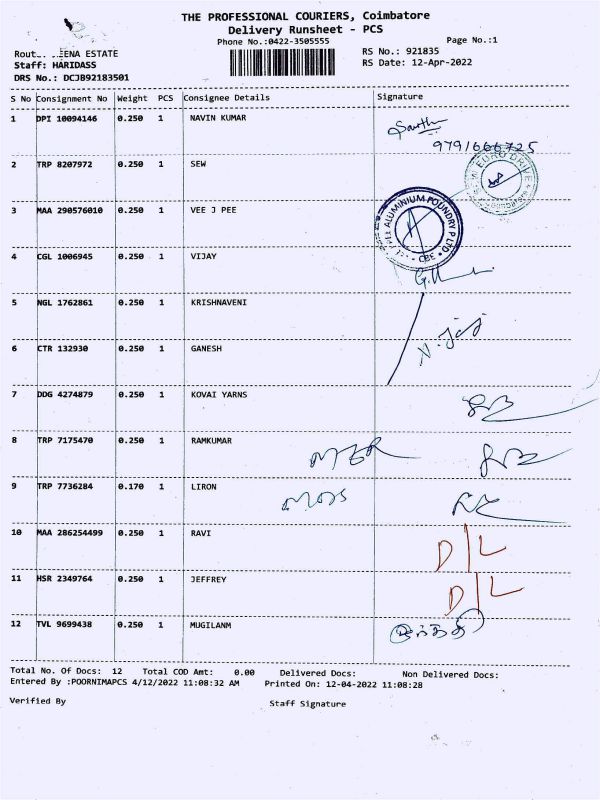 THE PROFESSIONAL COURIERS, Coimbatore
Delivery Runsheet - PCS
Phone No.:0422-3505555
Page No.:1
ESTATE
RS No.: 921835
Staff: HARIDASS
RS Date: 12-Apr-2022
DRS No.: DCJB92183501
S No Consignment No Weight PCS Consignee Details Signature
1 DPI 10094146 0.250 1 NAVIN KUMAR
9791666725
2 TRP 8207972 0.250 1 SEW
3 MAA 290576010 0.250 1 VEE J PEE
ALUMINIUM FOUNDRY P LTD
CBE
4 CGL 1006945 0.250 1 VIJAY
5 NGL 1762861 0.250 1 KRISHNAVENI
6 CTR 132930 0.250 1 GANESH
7 DDG 4274879 0.250 1 KOVAI YARNS
8 TRP 7175470 0.250 1 RAMKUMAR
9 TRP 7736284 0.170 1 LIRON
10 MAA 286254499 0.250 1 RAVI D/L
11 HSR 2349764 0.250 1 JEFFREY D/L
12 TVL 9699438 0.250 1 MUGILANM
Total No. Of Docs: 12 Total COD Amt: 0.00 Delivered Docs: Non Delivered Docs:
Entered By :POORNIMAPCS 4/12/2022 11:08:32 AM Printed On: 12-04-2022 11:08:28
Verified By Staff Signature